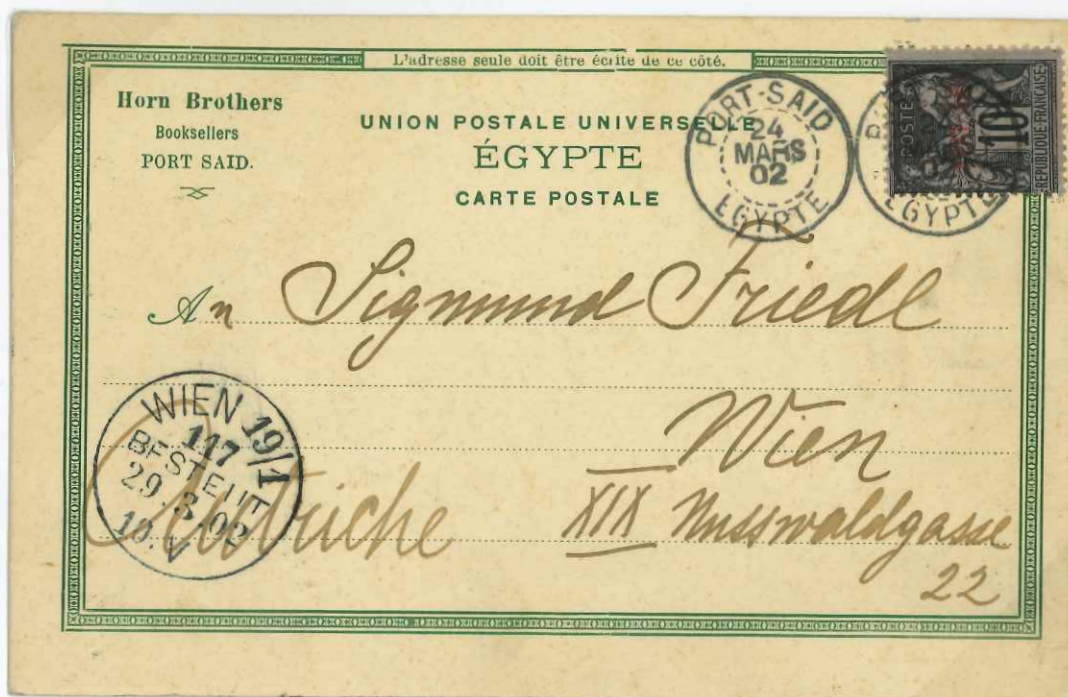 L'adresse seule doit être écrite de ce côté.
Horn Brothers
Booksellers
PORT SAID.
UNION POSTALE UNIVERSELLE
ÉGYPTE
CARTE POSTALE
PORT-SAID
24
MARS
02
EGYPTE
02
EGYPTE
POSTES
10
REPUBLIQUE FRANÇAISE
An Sigmund Friedl
Wien
XIX Nusswaldgasse
22
Autriche
WIEN 19/1
117
BESTELLT
29 3 02
10.V